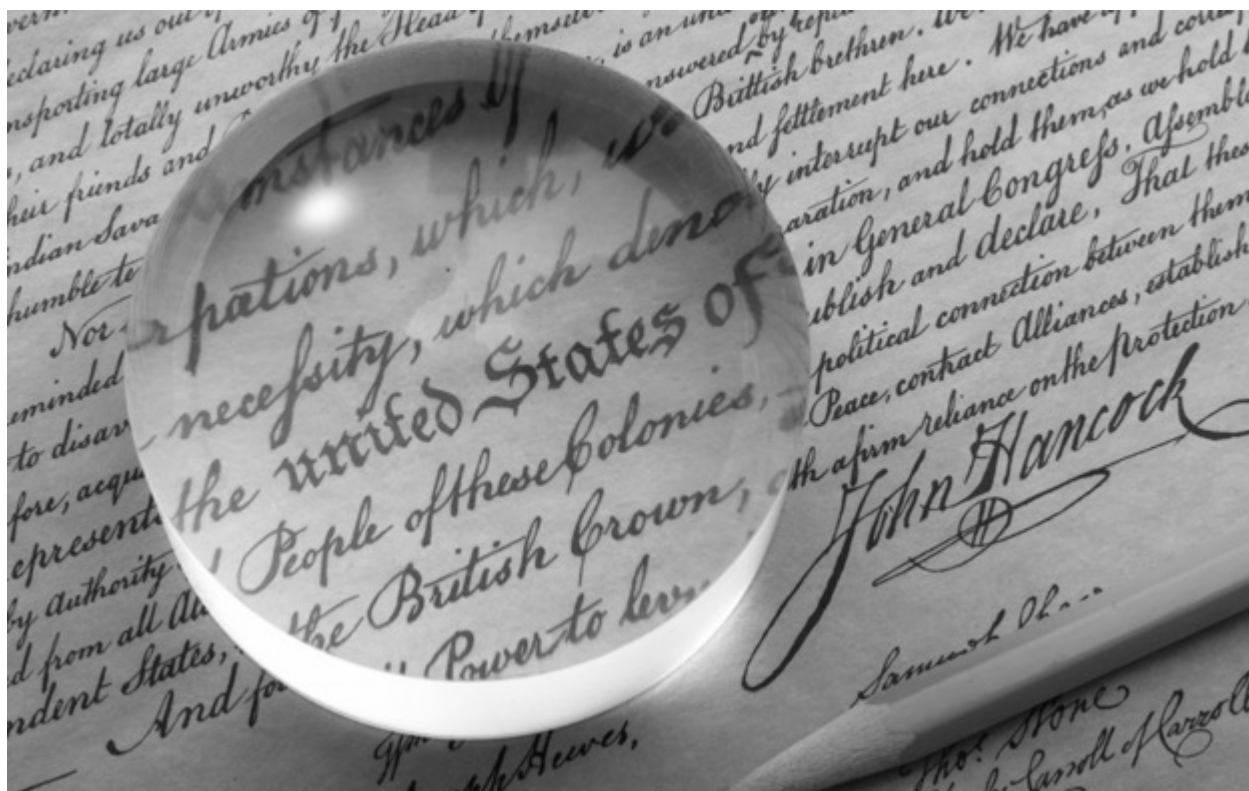 eclaring us out
nsporting large Armies of
, and totally unworthy the Head
heir friends and
ndian Sava
humble te
Nor
uminded
to disav
fore, acqu
epresent
by Authority
d from all
ndent States,
And for
umstances of
rpations, which, we
necefsity, which deno
the united States of
People of these Colonies,
the British Crown,
Power to lev
themselves
is an un
nswered by repe
Brittish brethren. We
We have
nd settlement here.
ly interrupt our connections and corresp
aration, and hold them, as we hold
in General Congrefs, Afsemble
ublish and declare, That thes
political connection between them
Peace, contract Alliances, establish
th a firm reliance on the Protection
John Hancock
H
Hewes,
Thos. Stone
Carroll of Carroll